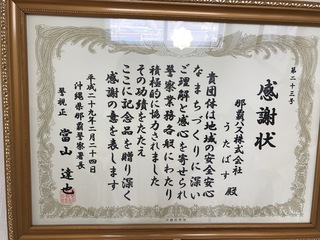 第二十三号
感謝状
那覇バス株式会社
うたばす 殿
貴団体は地域の安全安心
なまちづくりに深い
ご理解と感心を寄せられ
警察業務各般にわたり
積極的に協力されました
その功績をたたえ
ここに記念品を贈り深く
感謝の意を表します
平成二十九年二月二十四日
沖縄県那覇警察署長
警視正 當山達也